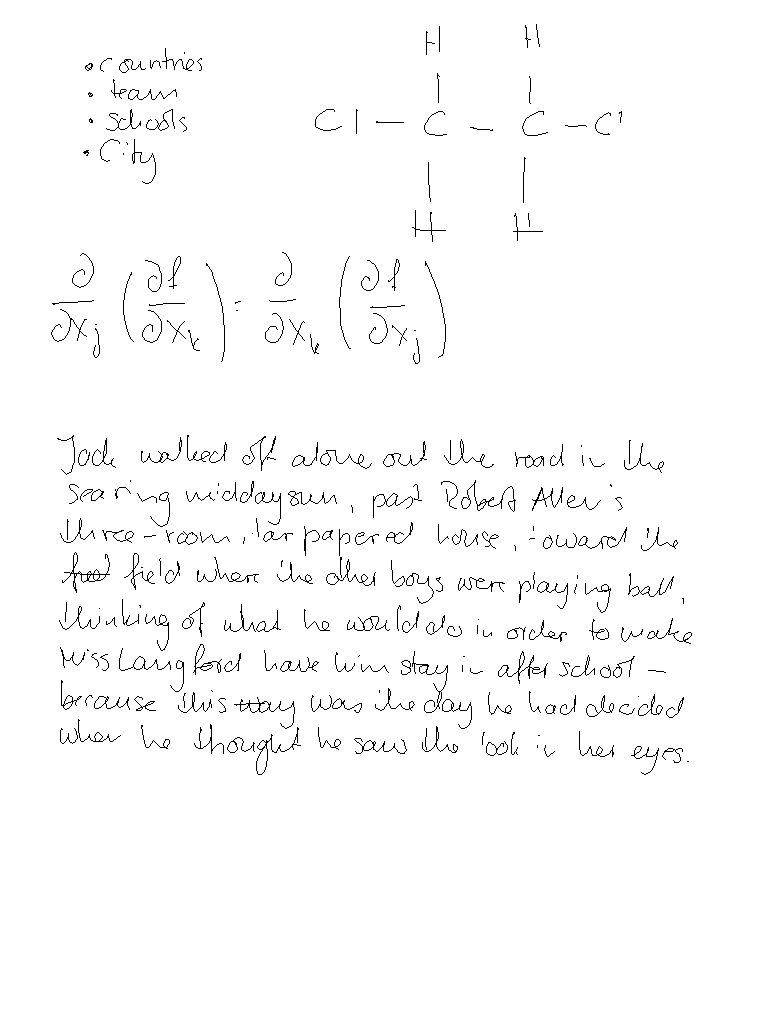 • countries
• team
• schools
• City
H H
Cl — C — C — Cl
H H
∂/∂x_j (∂f/∂x_k) = ∂/∂x_k (∂f/∂x_j)
Jack walked off alone out the road in the
searing midday sun, past Robert Allen's
three-room, tar papered house, toward the
field where the other boys were playing ball,
thinking of what he would do in order to make
Miss Langford have him stay in after school —
because this was the day he had decided
when he thought he saw the look in her eyes.